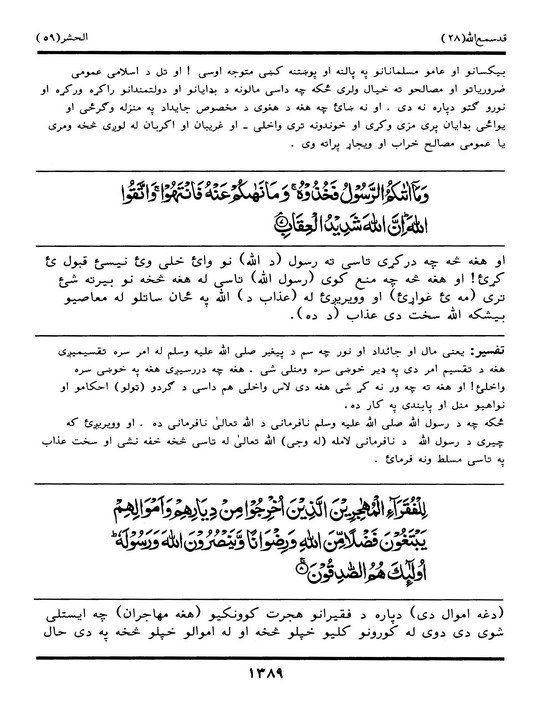 قدسمع الله(۲۸) الحشر(۵۹)
بیکسانو او عامو مسلمانانو په پالنه او پوښتنه کښی متوجه اوسی ! او تل د اسلامی عمومی
ضروریاتو او مصالحو ته خیال ولری ځکه چه داسی مالونه د بډایانو او دولتمندانو راکړه ورکړه او
نورو گټو دپاره نه دی . او نه ښائ چه هغه د هغوی د مخصوص جایداد په منزله وگرځی او
یواځی بډایان پری مزی وکړی او خوندونه تری واخلی ـ او غریبان او اکړیان له لوږی څخه ومری
یا عمومی مصالح خراب او ویجاړ پراته وی .
وَمَآ اٰتٰىكُمُ الرَّسُوْلُ فَخُذُوْهُ ۚ وَمَا نَهٰىكُمْ عَنْهُ فَانْتَهُوْا ۚ وَاتَّقُوا
اللّٰهَ ۭ اِنَّ اللّٰهَ شَدِيْدُ الْعِقَابِ ۷
او هغه څه چه درکړی تاسی ته رسول (د الله) نو وائ خلی وئ نیسئ قبول ئ
کړئ! او هغه څه چه منع کوی (رسول الله) تاسی له هغه څخه نو بیرته شئ
تری (مه ئ غواړئ) او وویریږئ له (عذاب د) الله په ځان ساتلو له معاصیو
بیشکه الله سخت دی عذاب (د ده).
تفسیر: یعنی مال او جائداد او نور چه سم د پیغبر صلی الله علیه وسلم له امر سره تقسیمیږی
هغه د تقسیم امر دی په ډیر خوښی سره ومنلی شی . هغه چه دررسیږی هغه په خوښی سره
واخلئ! او هغه ته چه ور نه کړ شی هغه دی لاس واخلی هم داسی د گردو (ټولو) احکامو او
نواهیو منل او پابندی په کار ده.
ځکه چه د رسول الله صلی الله علیه وسلم نافرمانی د الله تعالیٰ نافرمانی ده . او وویریږئ که
چیری د رسول الله د نافرمانی لامله (له وجی) الله تعالیٰ له تاسی څخه خفه نشی او سخت عذاب
په تاسی مسلط ونه فرمائ .
لِلْفُقَرَآءِ الْمُهٰجِرِيْنَ الَّذِيْنَ اُخْرِجُوْا مِنْ دِيَارِهِمْ وَاَمْوَالِهِمْ
يَبْتَغُوْنَ فَضْلًا مِّنَ اللّٰهِ وَرِضْوَانًا وَّيَنْصُرُوْنَ اللّٰهَ وَرَسُوْلَهٗ ۭ
اُولٰٓئِكَ هُمُ الصّٰدِقُوْنَ ۸
(دغه اموال دی) دپاره د فقیرانو هجرت کوونکیو (هغه مهاجران) چه ایستلی
شوی دی دوی له کورونو کلیو خپلو څخه او له اموالو خپلو څخه په دی حال
۱۳۸۹